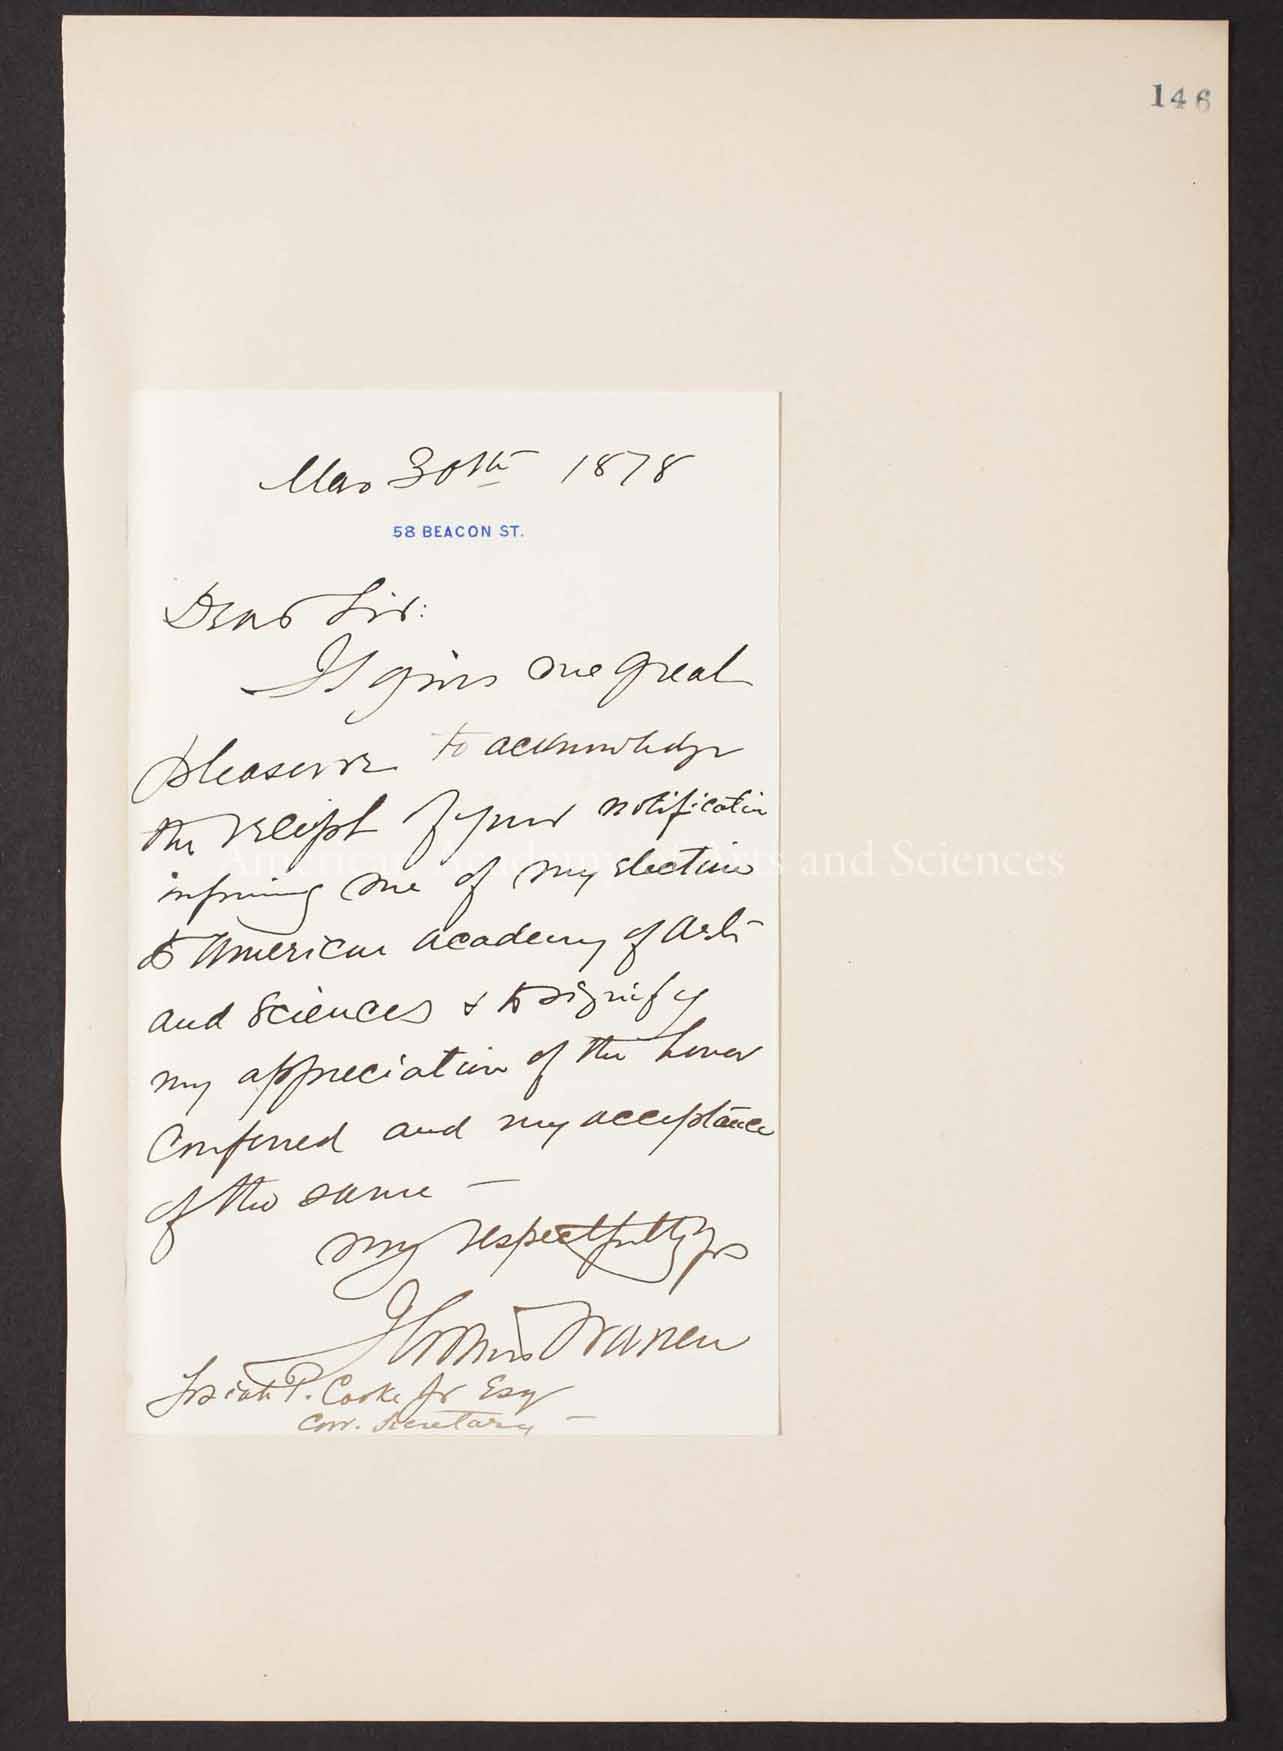 146
Mar 30th 1878
58 BEACON ST.
Dear Sir:
It gives me great
pleasure to acknowledge
the receipt of your notification
informing me of my election
to American Academy of Arts
and Sciences & to signify
my appreciation of the honor
Conferred and my acceptance
of the same —
respectfully yrs
Warren
Josiah P. Cooke Jr Esq
Corr. Secretary —
American Academy of Arts and Sciences